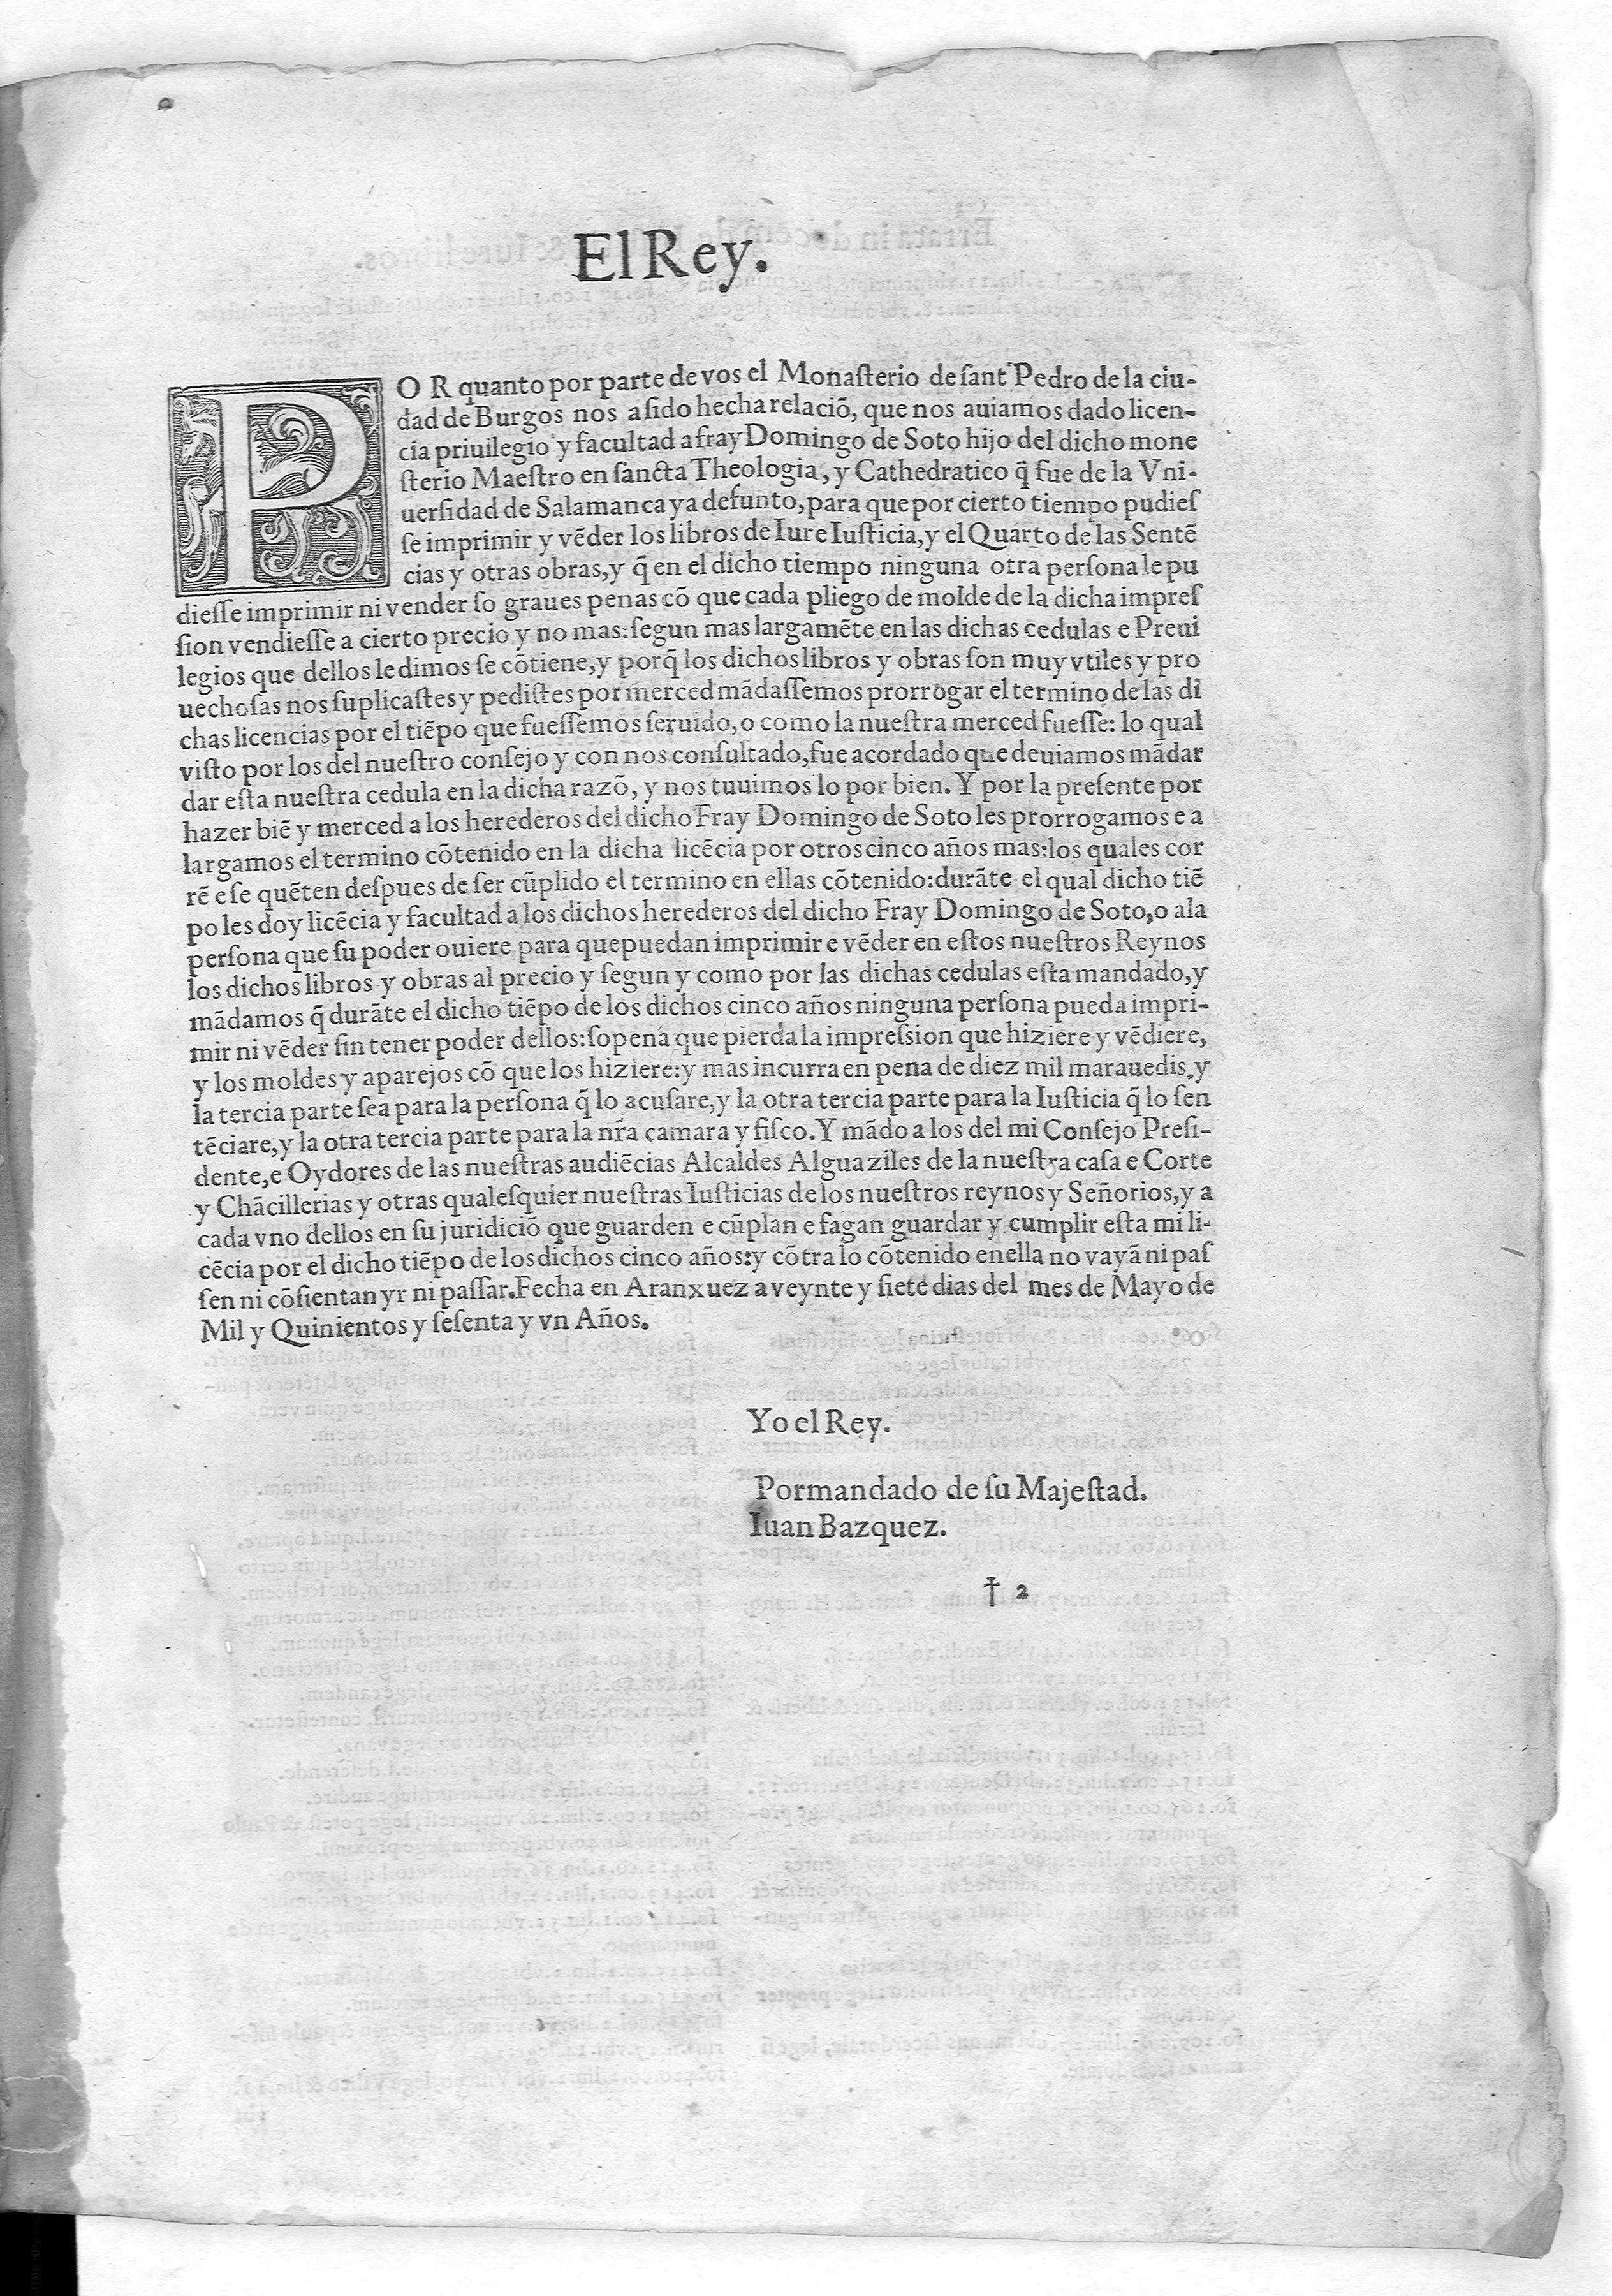 El Rey.
POR quanto por parte de vos el Monaſterio de ſant Pedro de la ciu-
dad de Burgos nos a ſido hecha relaciõ, que nos auiamos dado licen-
cia priuilegio y facultad a fray Domingo de Soto hijo del dicho mone
ſterio Maeſtro en ſancta Theologia, y Cathedratico q̃ fue de la Vni-
uerſidad de Salamanca ya defunto, para que por cierto tiempo pudieſ
ſe imprimir y vẽder los libros de Iure Iuſticia, y el Quarto de las Sentẽ
cias y otras obras, y q̃ en el dicho tiempo ninguna otra perſona le pu
dieſſe imprimir ni vender ſo graues penas cõ que cada pliego de molde de la dicha impreſ
ſion vendieſſe a cierto precio y no mas: ſegun mas largamẽte en las dichas cedulas e Preui
legios que dellos le dimos ſe cõtiene, y porq̃ los dichos libros y obras ſon muy vtiles y pro
uechoſas nos ſuplicaſtes y pediſtes por merced mãdaſſemos prorrogar el termino de las di
chas licencias por el tiẽpo que fueſſemos ſeruido, o como la nueſtra merced fueſſe: lo qual
viſto por los del nueſtro conſejo y con nos conſultado, fue acordado que deuiamos mãdar
dar eſta nueſtra cedula en la dicha razõ, y nos tuuimos lo por bien. Y por la preſente por
hazer biẽ y merced a los herederos del dicho Fray Domingo de Soto les prorrogamos e a
largamos el termino cõtenido en la dicha licẽcia por otros cinco años mas: los quales cor
rẽ e ſe quẽten deſpues de ſer cũplido el termino en ellas cõtenido: durãte el qual dicho tiẽ
po les doy licẽcia y facultad a los dichos herederos del dicho Fray Domingo de Soto, o ala
perſona que ſu poder ouiere para que puedan imprimir e vẽder en eſtos nueſtros Reynos
los dichos libros y obras al precio y ſegun y como por las dichas cedulas eſta mandado, y
mãdamos q̃ durãte el dicho tiẽpo de los dichos cinco años ninguna perſona pueda impri-
mir ni vẽder ſin tener poder dellos: ſopena que pierda la impreſsion que hiziere y vẽdiere,
y los moldes y aparejos cõ que los hiziere: y mas incurra en pena de diez mil marauedis, y
la tercia parte ſea para la perſona q̃ lo acuſare, y la otra tercia parte para la Iuſticia q̃ lo ſen
tẽciare, y la otra tercia parte para la nr̃a camara y fiſco. Y mãdo a los del mi Conſejo Preſi-
dente, e Oydores de las nueſtras audiẽcias Alcaldes Alguaziles de la nueſtra caſa e Corte
y Chãcillerias y otras qualeſquier nueſtras Iuſticias de los nueſtros reynos y Señorios, y a
cada vno dellos en ſu juridiciõ que guarden e cũplan e fagan guardar y cumplir eſta mi li-
cẽcia por el dicho tiẽpo de los dichos cinco años: y cõtra lo cõtenido en ella no vayã ni paſ
ſen ni cõſientan yr ni paſſar. Fecha en Aranxuez a veynte y ſiete dias del mes de Mayo de
Mil y Quinientos y ſeſenta y vn Años.
Yo el Rey.
Por mandado de ſu Majeſtad.
Iuan Bazquez.
† 2